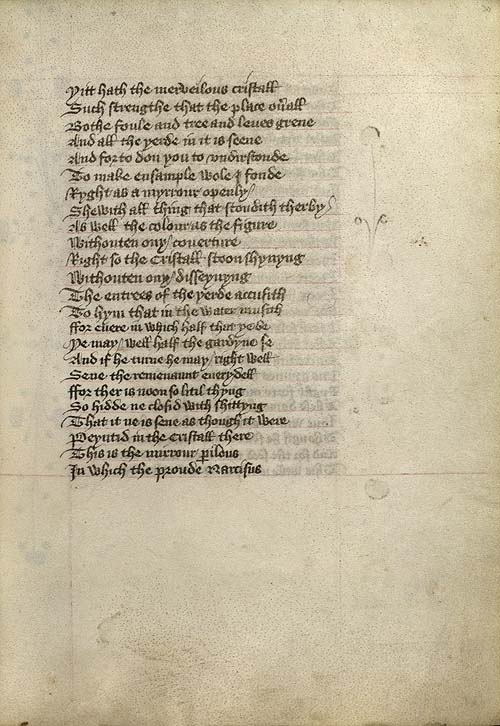 Yitt hath the merveilous cristall
Such strengthe that the place ou̅all
Bothe foule and tree and leues grene
And all the yerde in it is seene
And forto don you to vndirstonde
To make ensample wole I fonde
Ryght as a myrrour openly
Shewith all thing that stondith therby
As well the colour as the figure
Withouten ony couerture
Right so the Cristall stoon shynyng
Withouten ony disseyuyng
The entrees of the yerde accusith
To hym that in the water musith
ffor euere in which half that ye be
Ye may well half the gardyne se
And if he turne he may right well
Sene the remenaunt euerydell
ffor ther is noon so litil thyng
So hidde ne closid with shittyng
That it ne is sene as though it were
Peyntid in the Cristall there
This is the mirrour ꝑilous
In which the proude Narcisus